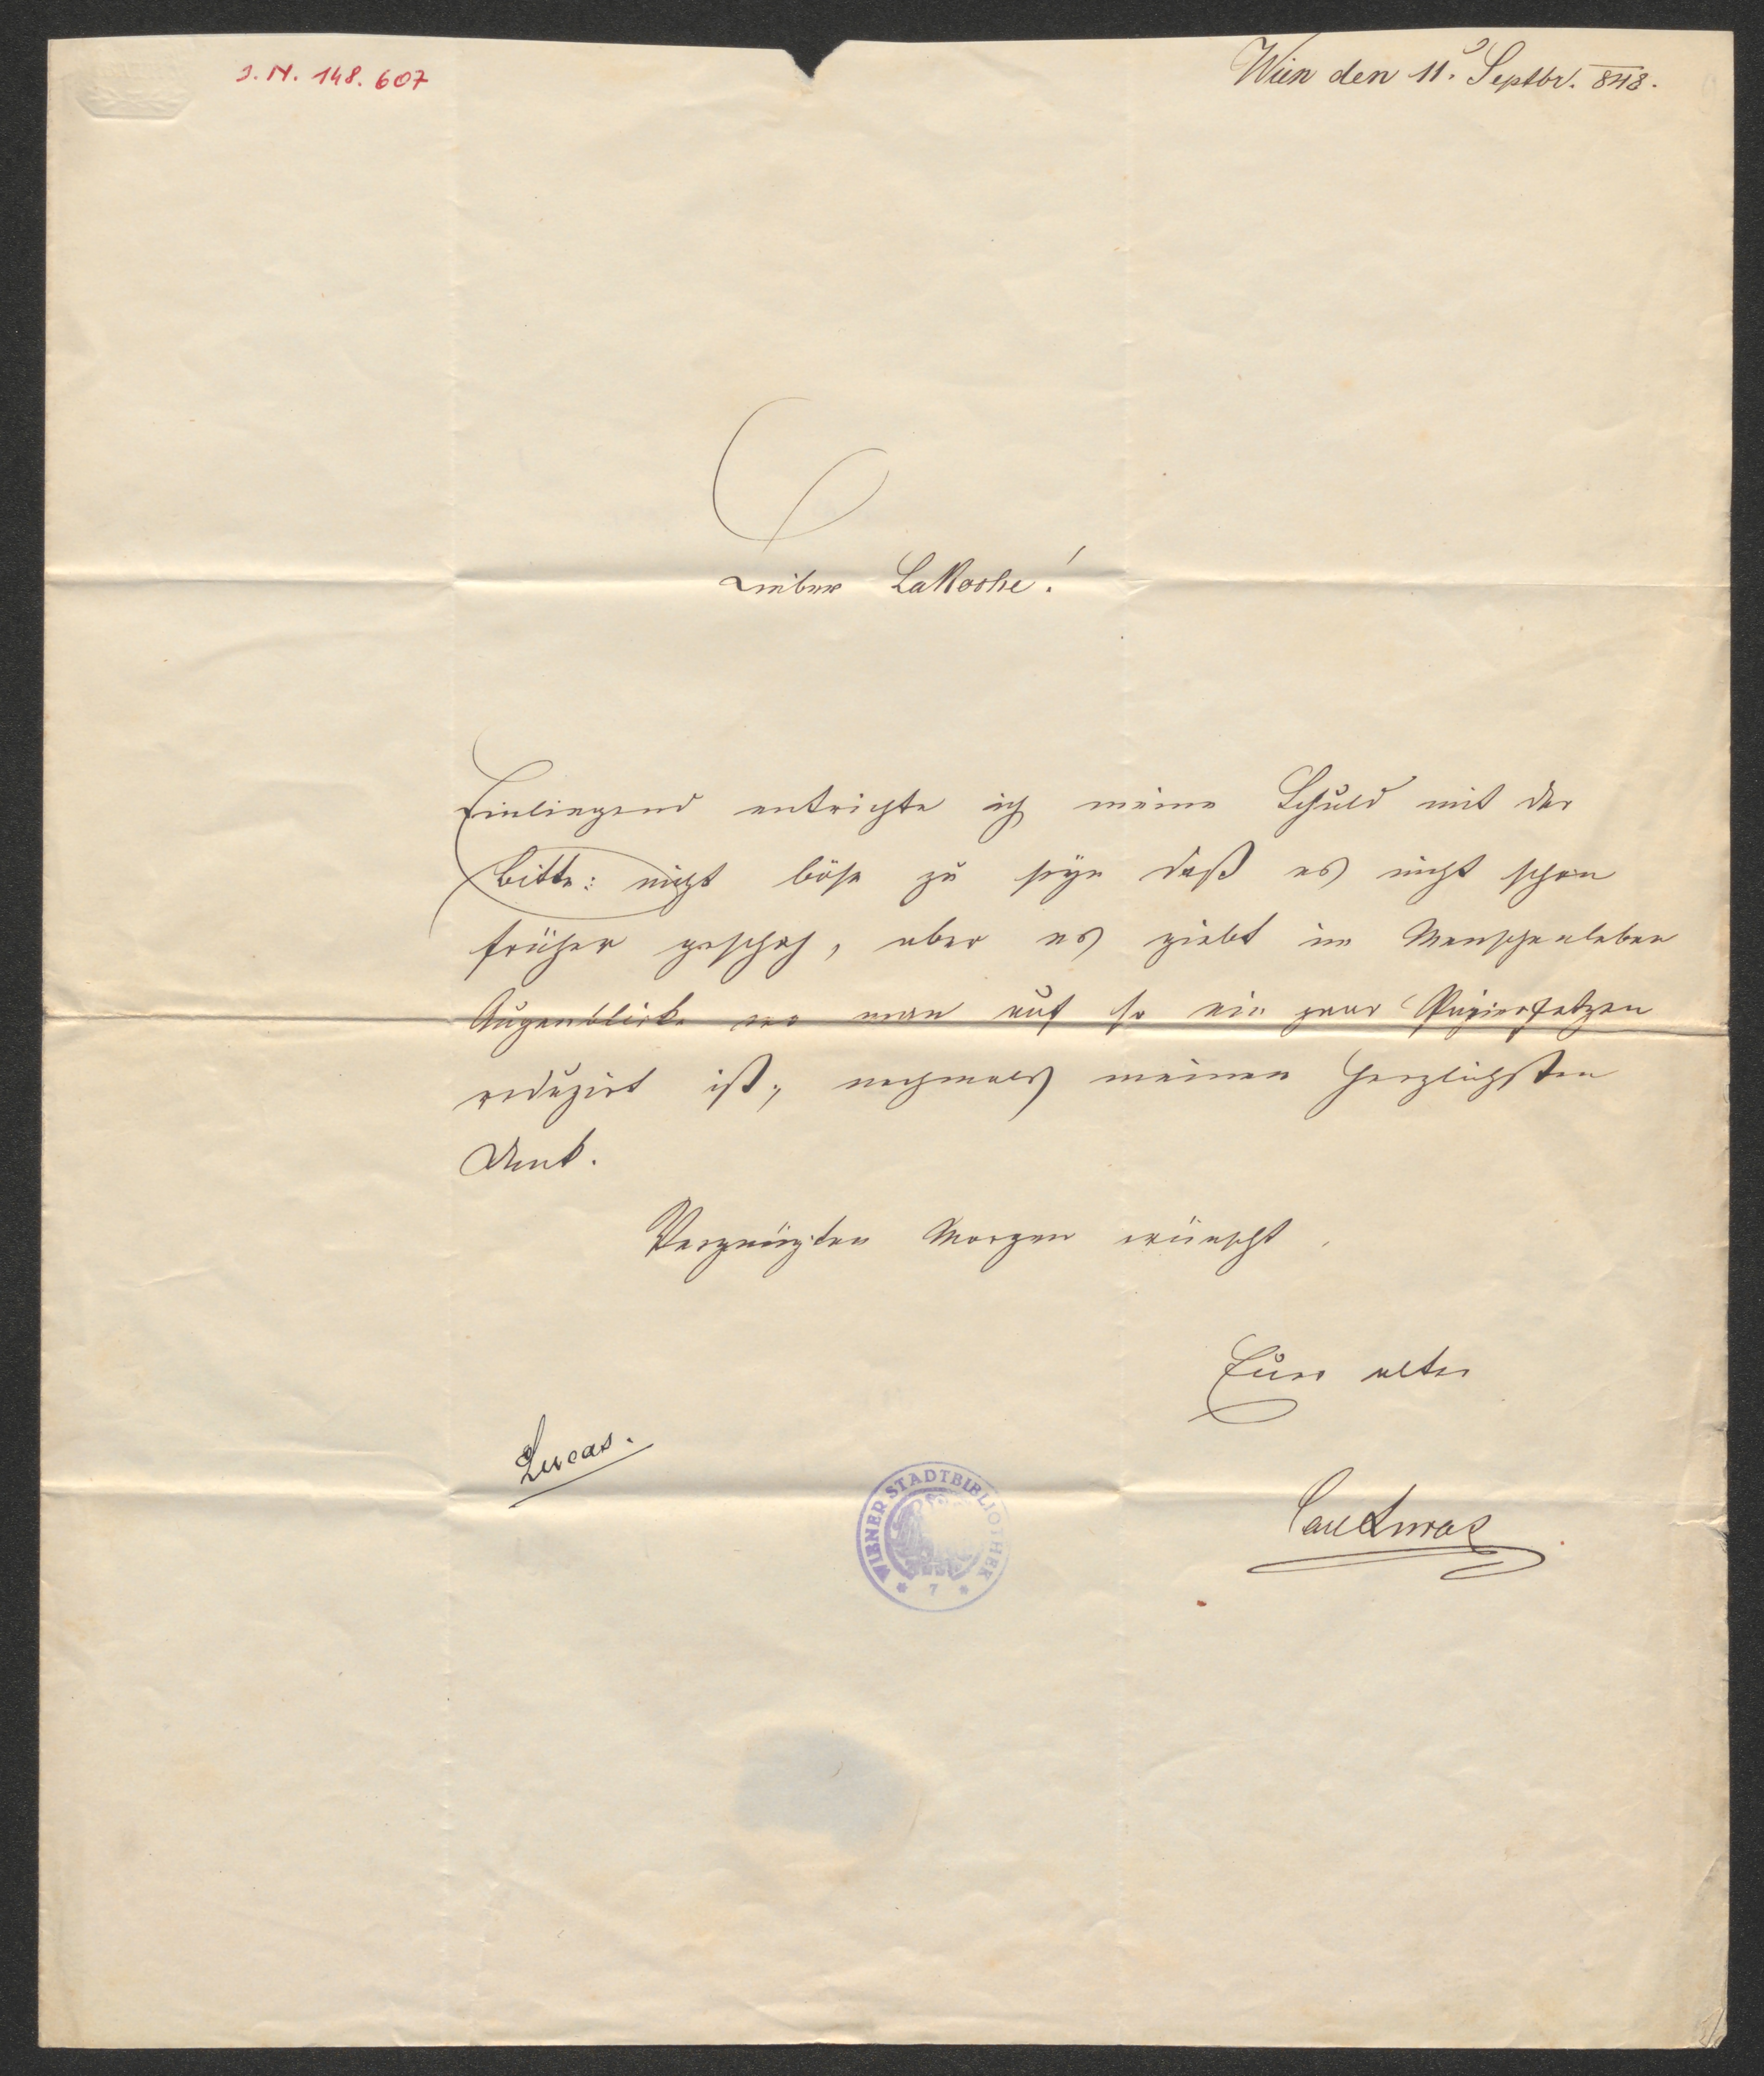 I. N. 148.607
Wien den 11. Septbr. 848.
Lieber LaRoche!
Einliegend entrichte ich meine Schuld mit der
Bitte: nicht böse zu seyn daß es nicht schon
früher geschah, aber es giebt im Menschenleben
Augenblicke wo man auf so ein paar Papierfetzen
reduzirt ist, nochmals meinen herzlichsten
Dank.
Vergnügten Morgen wünscht
Euer alter
Lucas.
Carl Lucas
WIENER STADTBIBLIOTHEK
* 7 *